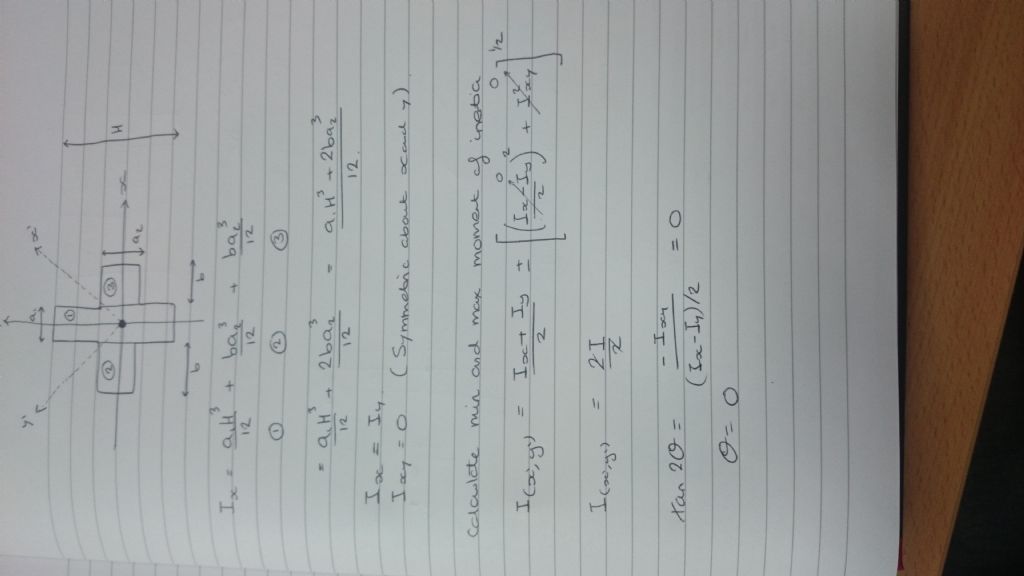 y'
x'
a₁
①
②
③
x
a₂
H
b
b
Ix = a₁H³/12 + ba₂³/12 + ba₂³/12
① ② ③
= a₁H³/12 + 2ba₂³/12 = a₁H³ + 2ba₂³/12
Ix = Iy
Ixy = 0 (Symmetric about x and y)
calculate min and max moment of inertia
I(x',y') = Ix + Iy/2 ± [(Ix - Iy/2)² + I²xy]^1/2
0 0
I(x',y') = 2I/2
tan 2θ = -Ixy/(Ix - Iy)/2 = 0
θ = 0